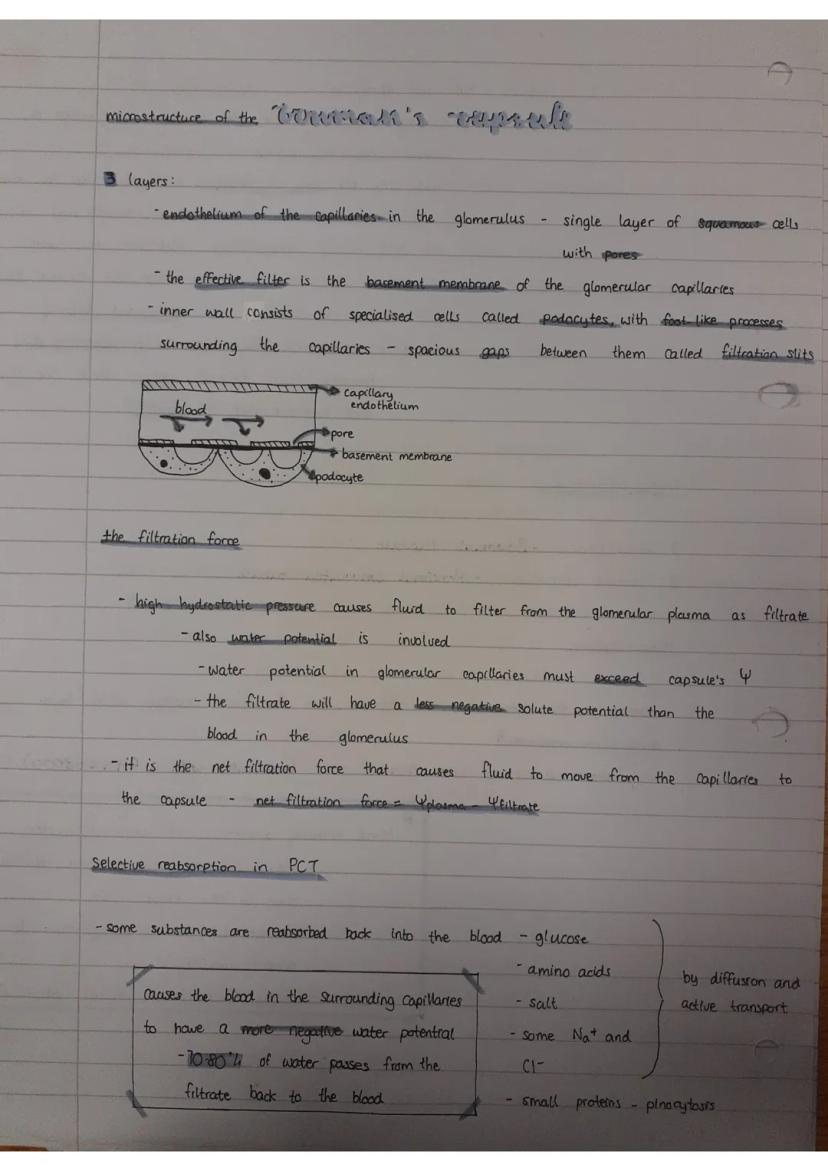 microstructure of the Bowman's capsule
3 layers:
- endothelium of the capillaries in the glomerulus - single layer of squamous cells
with pores
- the effective filter is the basement membrane of the glomerular capillaries
- inner wall consists of specialised cells called podocytes, with foot like processes
surrounding the capillaries - spacious gaps between them called filtration slits
capillary
endothelium
blood
pore
basement membrane
podocyte
the filtration force
- high hydrostatic pressure causes fluid to filter from the glomerular plasma as filtrate
- also water potential is involved
- water potential in glomerular capillaries must exceed capsule's Ψ
- the filtrate will have a less negative solute potential than the
blood in the glomerulus
- it is the net filtration force that causes fluid to move from the capillaries to
the capsule - net filtration force = Ψplasma - Ψfiltrate
Selective reabsorption in PCT
- some substances are reabsorbed back into the blood - glucose
- amino acids
- salt
- some Na⁺ and
Cl⁻
by diffusion and
active transport
- small proteins - pinocytosis
causes the blood in the surrounding capillaries
to have a more negative water potential
- 70-80% of water passes from the
filtrate back to the blood